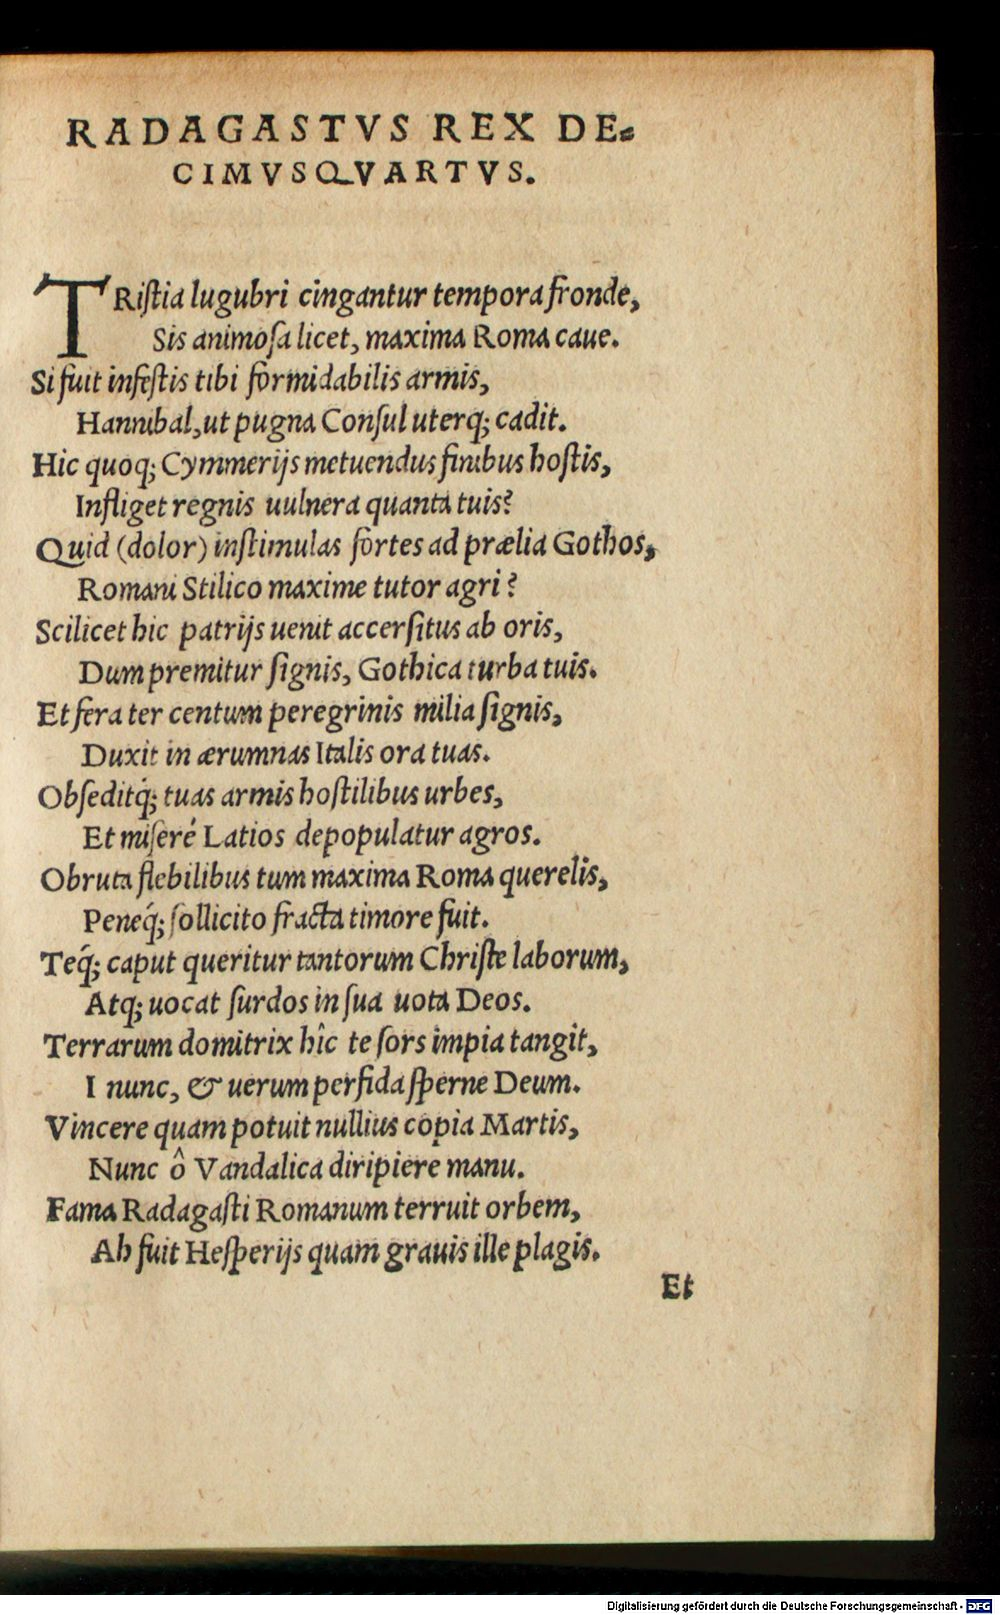 RADAGASTVS REX DE-
CIMVSQVARTVS.
TRiſtia lugubri cingantur tempora fronde,
Sis animoſa licet, maxima Roma caue.
Si fuit infeſtis tibi formidabilis armis,
Hannibal, ut pugna Conſul uterq; cadit.
Hic quoq; Cymmerijs metuendus finibus hoſtis,
Infliget regnis uulnera quanta tuis?
Quid (dolor) inſtimulas fortes ad prælia Gothos,
Romani Stilico maxime tutor agri?
Scilicet hic patrijs uenit accerſitus ab oris,
Dum premitur ſignis, Gothica turba tuis.
Et fera ter centum peregrinis milia ſignis,
Duxit in ærumnas Italis ora tuas.
Obſeditq́; tuas armis hoſtilibus urbes,
Et miſeré Latios depopulatur agros.
Obruta flebilibus tum maxima Roma querelis,
Peneq́; ſollicito fracta timore fuit.
Teq́; caput queritur tantorum Chriſte laborum,
Atq; uocat ſurdos in ſua uota Deos.
Terrarum domitrix hîc te ſors impia tangit,
I nunc, & uerum perfida ſperne Deum.
Vincere quam potuit nullius copia Martis,
Nunc ô Vandalica diripiere manu.
Fama Radagaſti Romanum terruit orbem,
Ah fuit Heſperijs quam grauis ille plagis.
Et
Digitalisierung gefördert durch die Deutsche Forschungsgemeinschaft - DFG